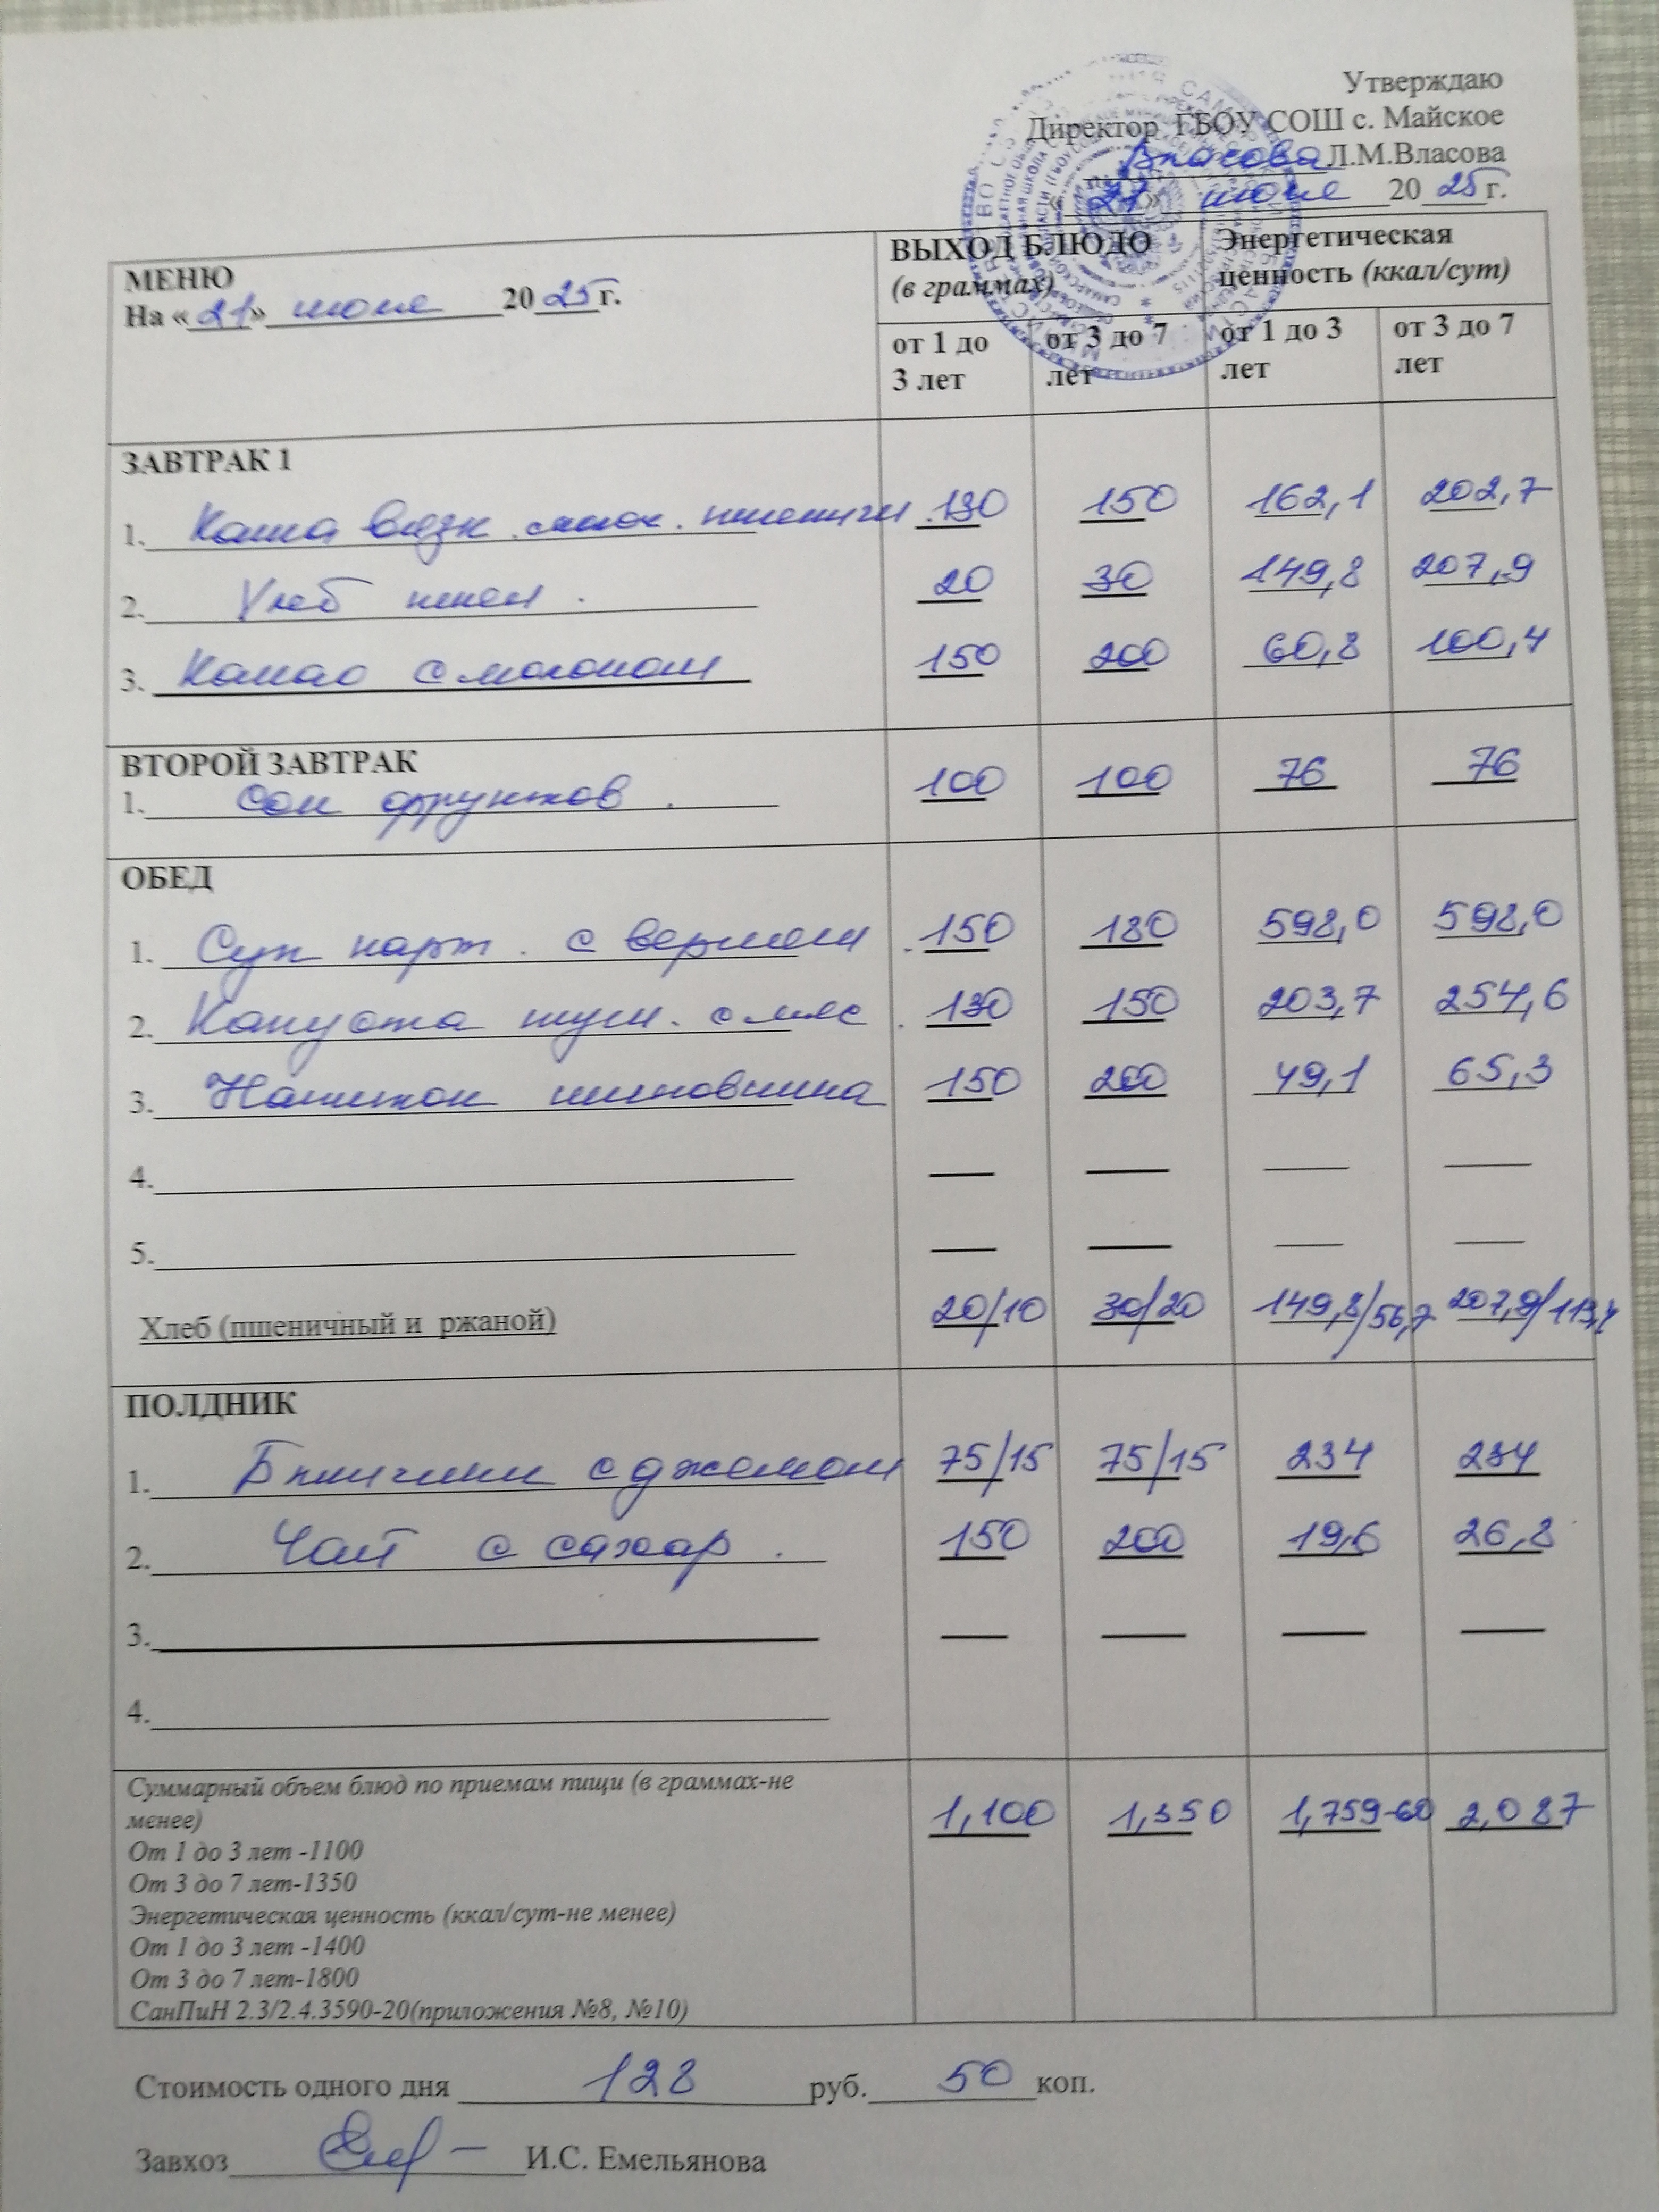 Утверждаю
Директор ГБОУ СОШ с. Майское
Власова Л.М.Власова
«21» июля 2025г.
МЕНЮ
На «21» июля 2025г.
ВЫХОД БЛЮДО
(в граммах)
Энергетическая
ценность (ккал/сут)
от 1 до
3 лет
от 3 до 7
лет
от 1 до 3
лет
от 3 до 7
лет
ЗАВТРАК 1
1. Каша вязк. молоч. пшеничн. 130 150 162,1 202,7
2. Хлеб пшен. 20 30 149,8 207,9
3. Какао с молоком 150 200 60,8 100,4
ВТОРОЙ ЗАВТРАК
1. Сок фруктов. 100 100 76 76
ОБЕД
1. Суп карт. с вермеш. 150 180 598,0 598,0
2. Капуста туш. с мяс. 130 150 203,7 254,6
3. Напиток шиповника 150 200 49,1 65,3
4. — — — —
5. — — — —
Хлеб (пшеничный и ржаной) 20/10 30/20 149,8/56,7 207,9/113,4
ПОЛДНИК
1. Блинчики с джемом 75/15 75/15 234 234
2. Чай с сахар. 150 200 19,6 26,8
3. — — — —
4.
Суммарный объем блюд по приемам пищи (в граммах-не
менее)
1,100 1,350 1,759-60 2,087
От 1 до 3 лет -1100
От 3 до 7 лет-1350
Энергетическая ценность (ккал/сут-не менее)
От 1 до 3 лет -1400
От 3 до 7 лет-1800
СанПиН 2.3/2.4.3590-20(приложения №8, №10)
Стоимость одного дня 128 руб. 50 коп.
Завхоз И.С. Емельянова